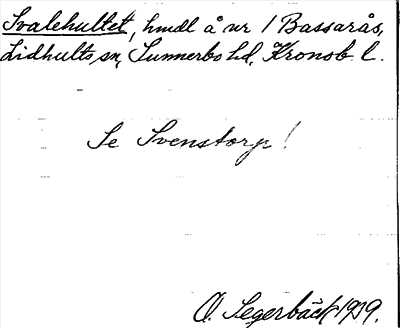 Svalehultet, hmdl å nr 1 Bassarås,
Lidhults sn, Sunnerbo hd, Kronob. l.
Se Svenstorp!
O. Segerbäck 1939.